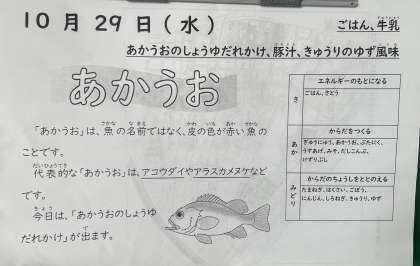 10月29日(水)
ごはん、牛乳
あかうおのしょうゆだれかけ、豚汁、きゅうりのゆず風味
あかうお
「あかうお」は、魚の名前ではなく、皮の色が赤い魚の
ことです。
代表的な「あかうお」は、アコウダイやアラスカメヌケなど
です。
今日は、「あかうおのしょうゆ
だれかけ」が出ます。
エネルギーのもとになる
き
ごはん、さとう
からだをつくる
あか
ぎゅうにゅう、あかうお、ぶたにく、
うすあげ、みそ、だしこんぶ、
けずりぶし
からだのちょうしをととのえる
みどり
たまねぎ、はくさい、ごぼう、
にんじん、しろねぎ、きゅうり、ゆず